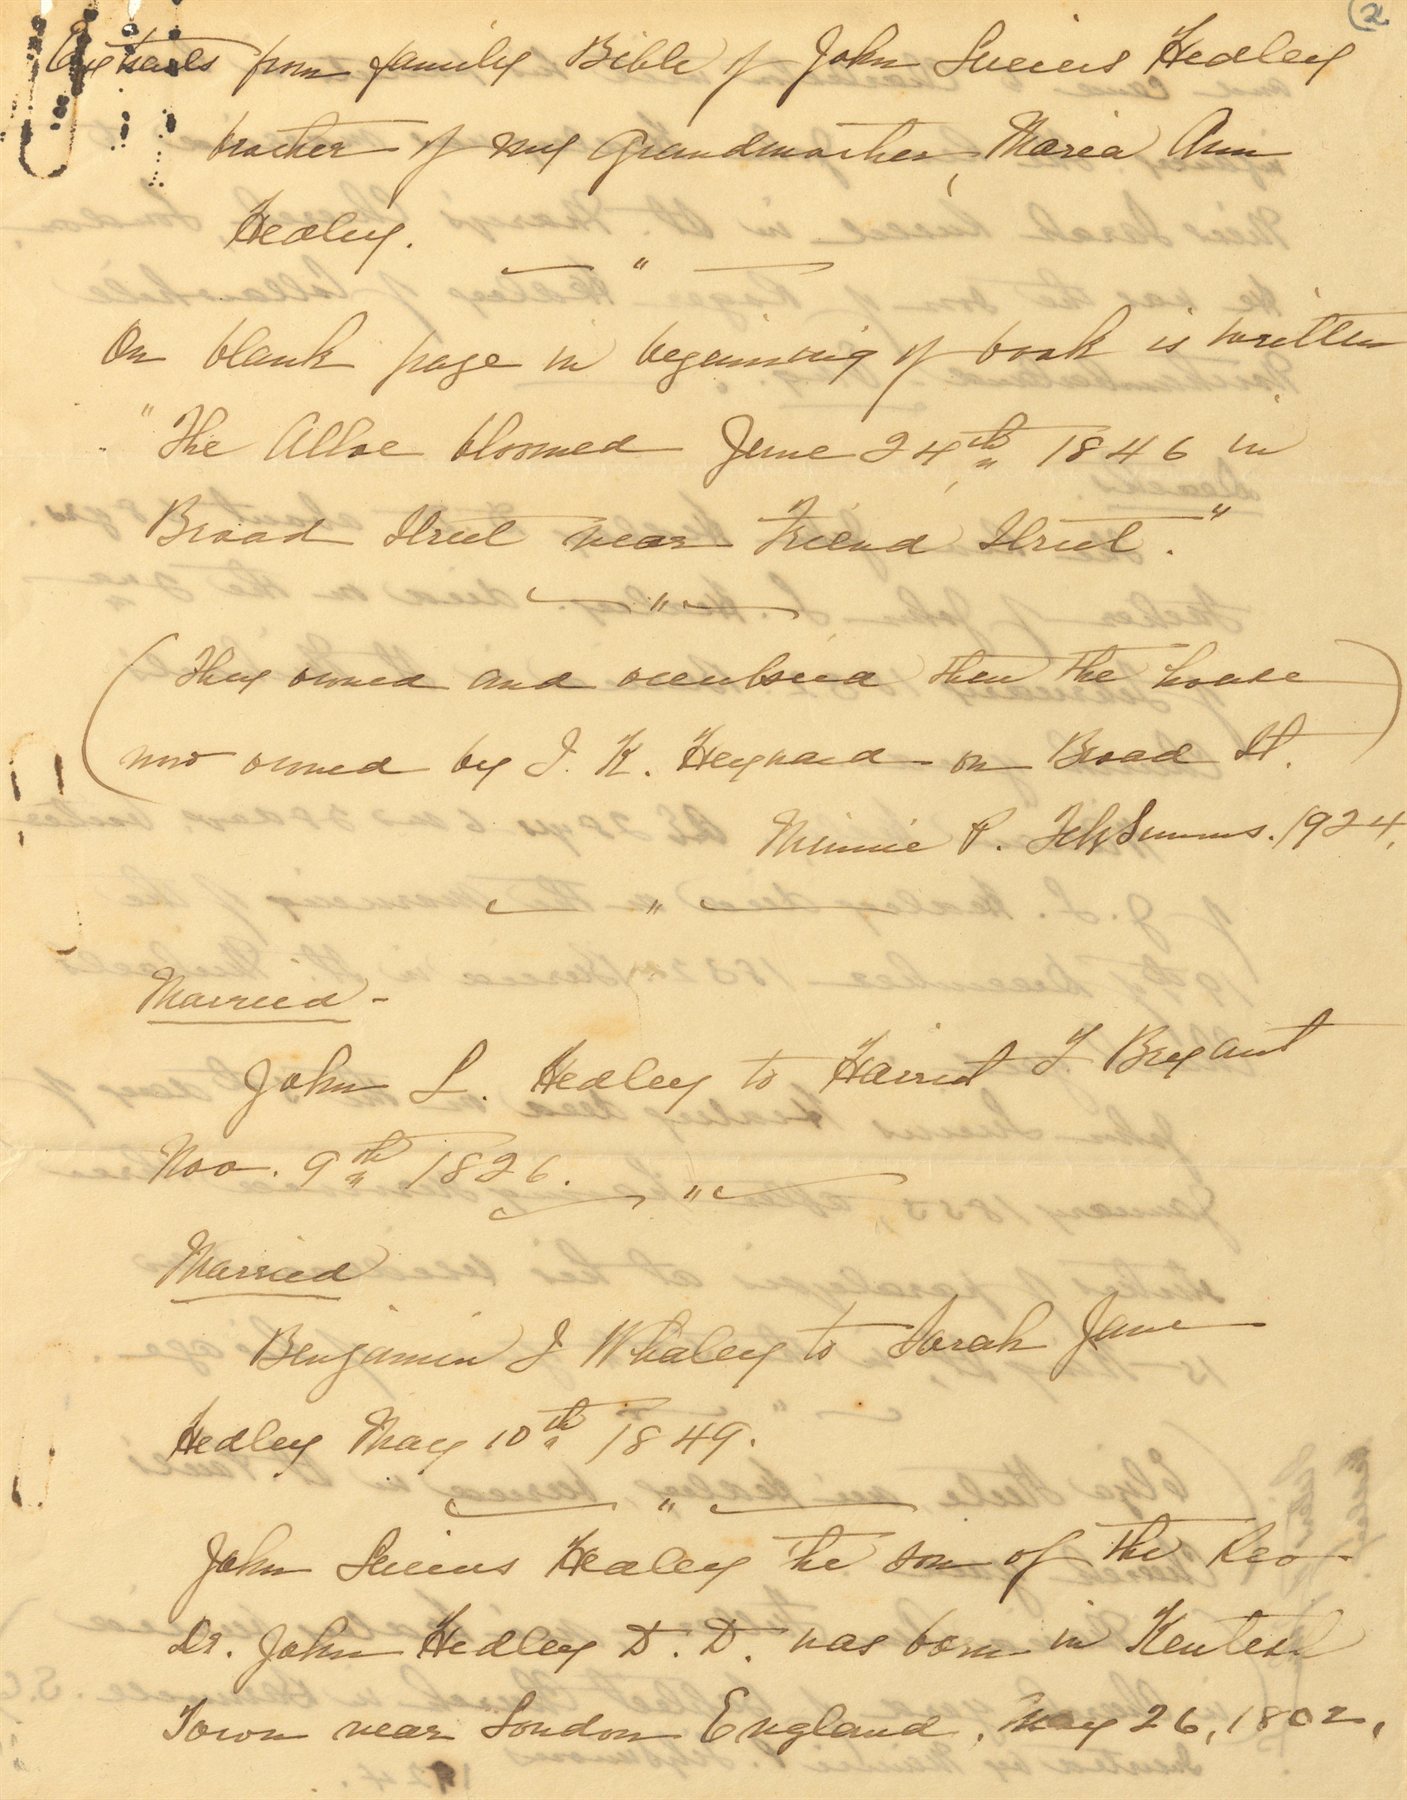 (2
Extracts from family Bible of John Lucius Hedley
brother of my Grandmother, Maria Ann
Hedley.
"
On blank page in beginning of book is written
"The Alloe bloomed June 24th 1846 in
Broad Street near Friend Street."
"
(They owned and occupied then the house
now owned by J. K. Heyward on Broad St.)
Minnie P. FitzSimons. 1924.
"
Married -
John L. Hedley to Harriet T. Bryant
Nov. 9th 1826.
"
Married
Benjamin J Whaley to Sarah Jane
Hedley May 10th 1849.
"
John Lucius Hedley the son of the Rev.
Dr. John Hedley D. D. was born in Kentesh
Town near London England, May 26, 1802,